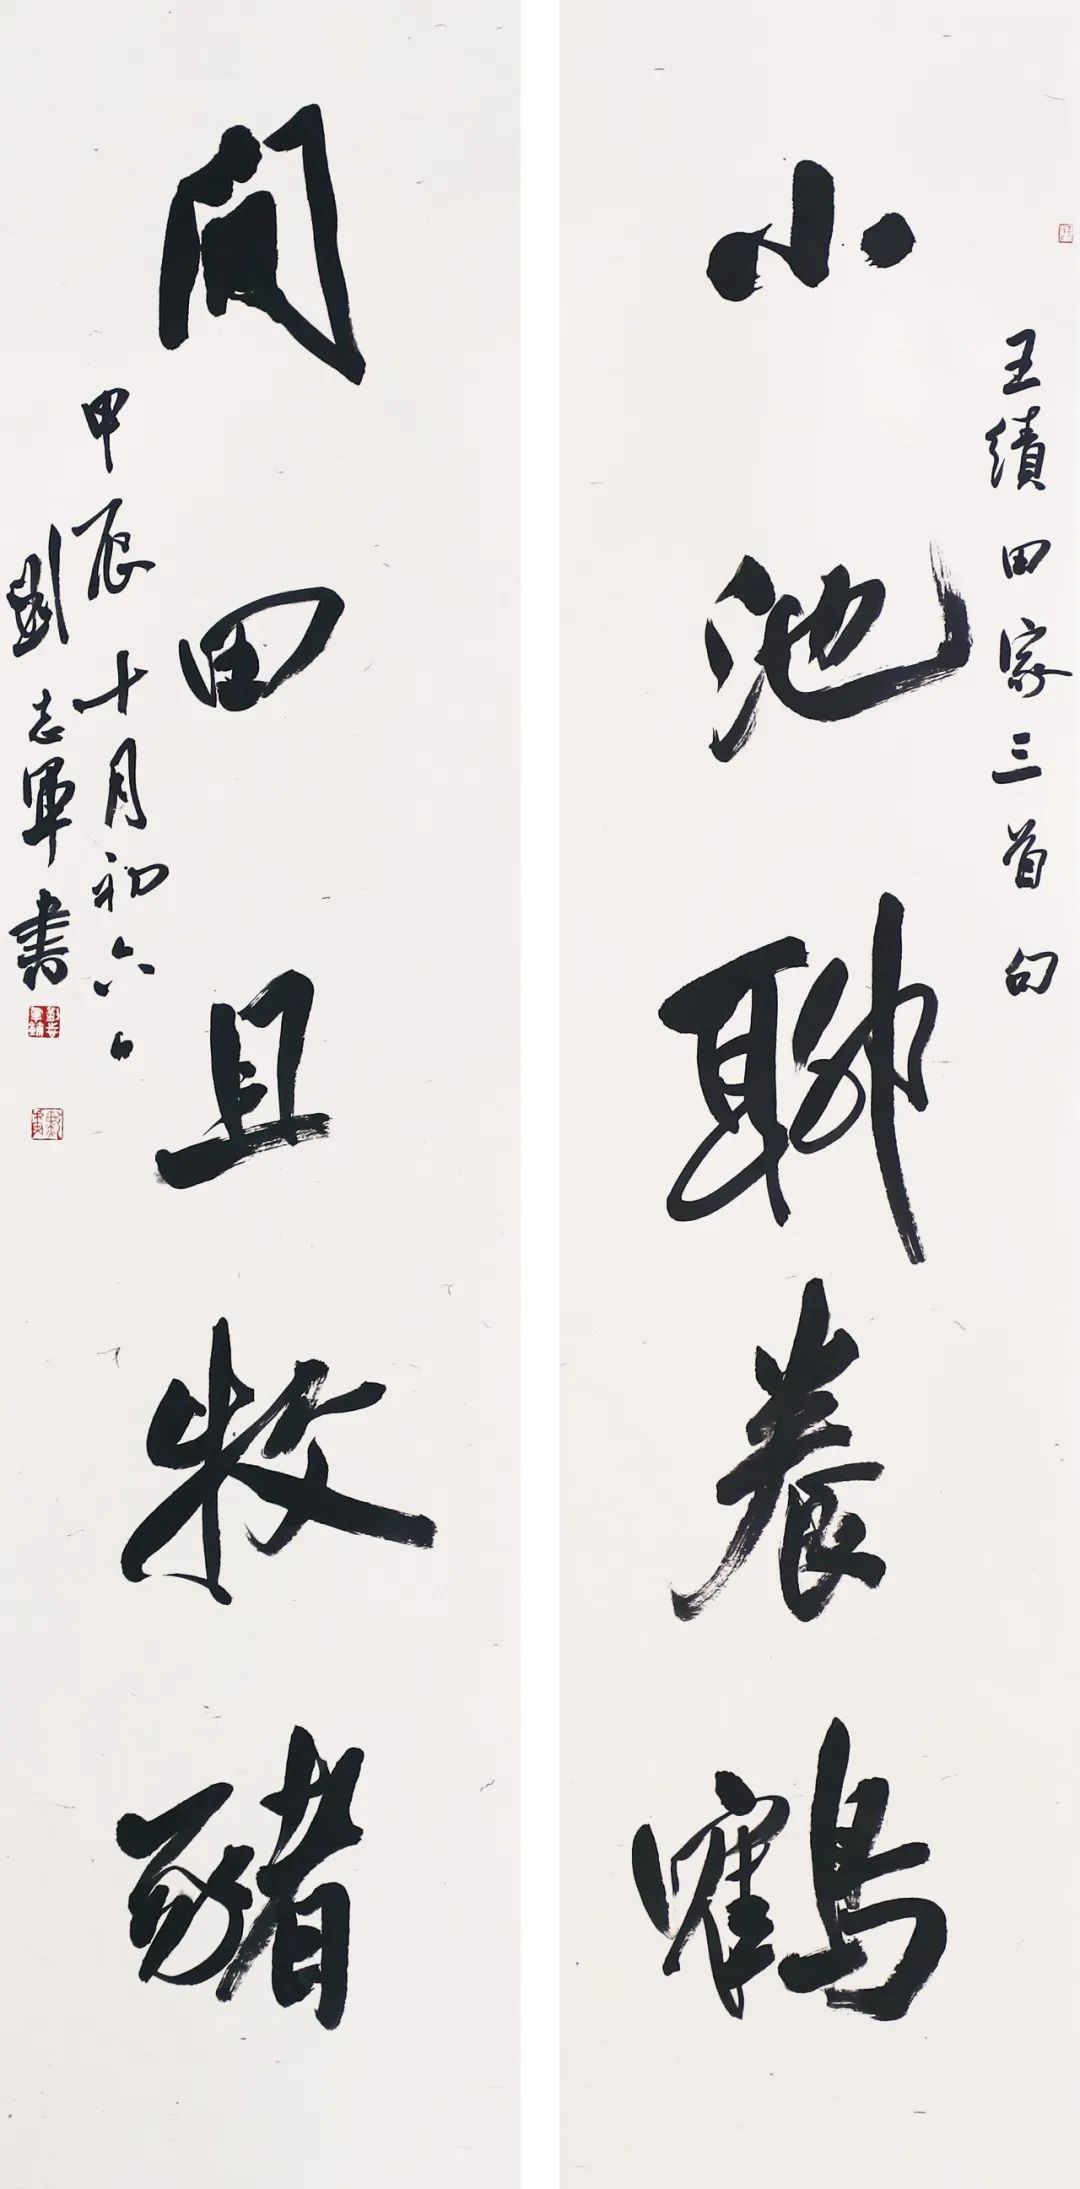 小池聊養鶴
王績田家三首句
閒田且牧豬
甲辰十月初六日
劉志軍書